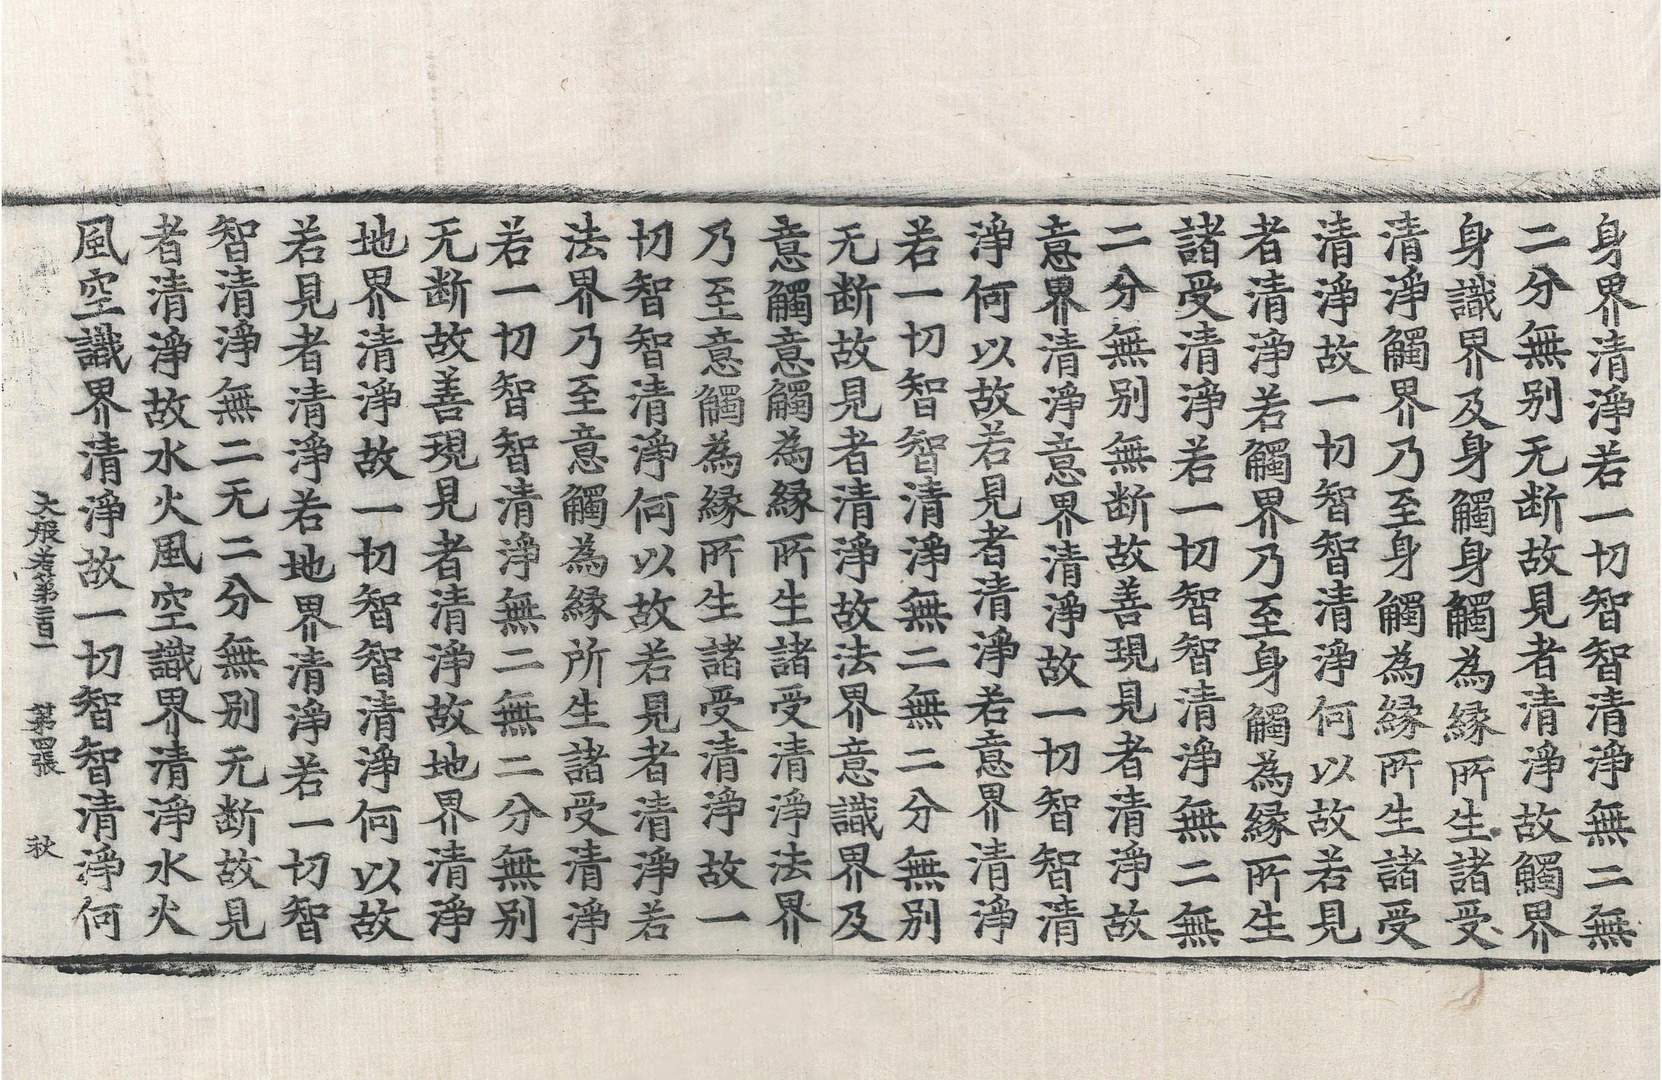 身界清淨若一切智智清淨無二無
二分無别无断故見者清淨故觸界
身識界及身觸身觸為縁所生諸受
清淨觸界乃至身觸為縁所生諸受
清淨故一切智智清淨何以故若見
者清淨若觸界乃至身觸為縁所生
諸受清淨若一切智智清淨無二無
二分無别無断故善現見者清淨故
意界清淨意界清淨故一切智智清
淨何以故若見者清淨若意界清淨
若一切智智清淨無二無二分無别
无断故見者清淨故法界意識界及
意觸意觸為縁所生諸受清淨法界
乃至意觸為縁所生諸受清淨故一
切智智清淨何以故若見者清淨若
法界乃至意觸為縁所生諸受清淨
若一切智智清淨無二無二分無别
无断故善現見者清淨故地界清淨
地界清淨故一切智智清淨何以故
若見者清淨若地界清淨若一切智
智清淨無二无二分無别无断故見
者清淨故水火風空識界清淨水火
風空識界清淨故一切智智清淨何
大般若第二百一 第四張 秋